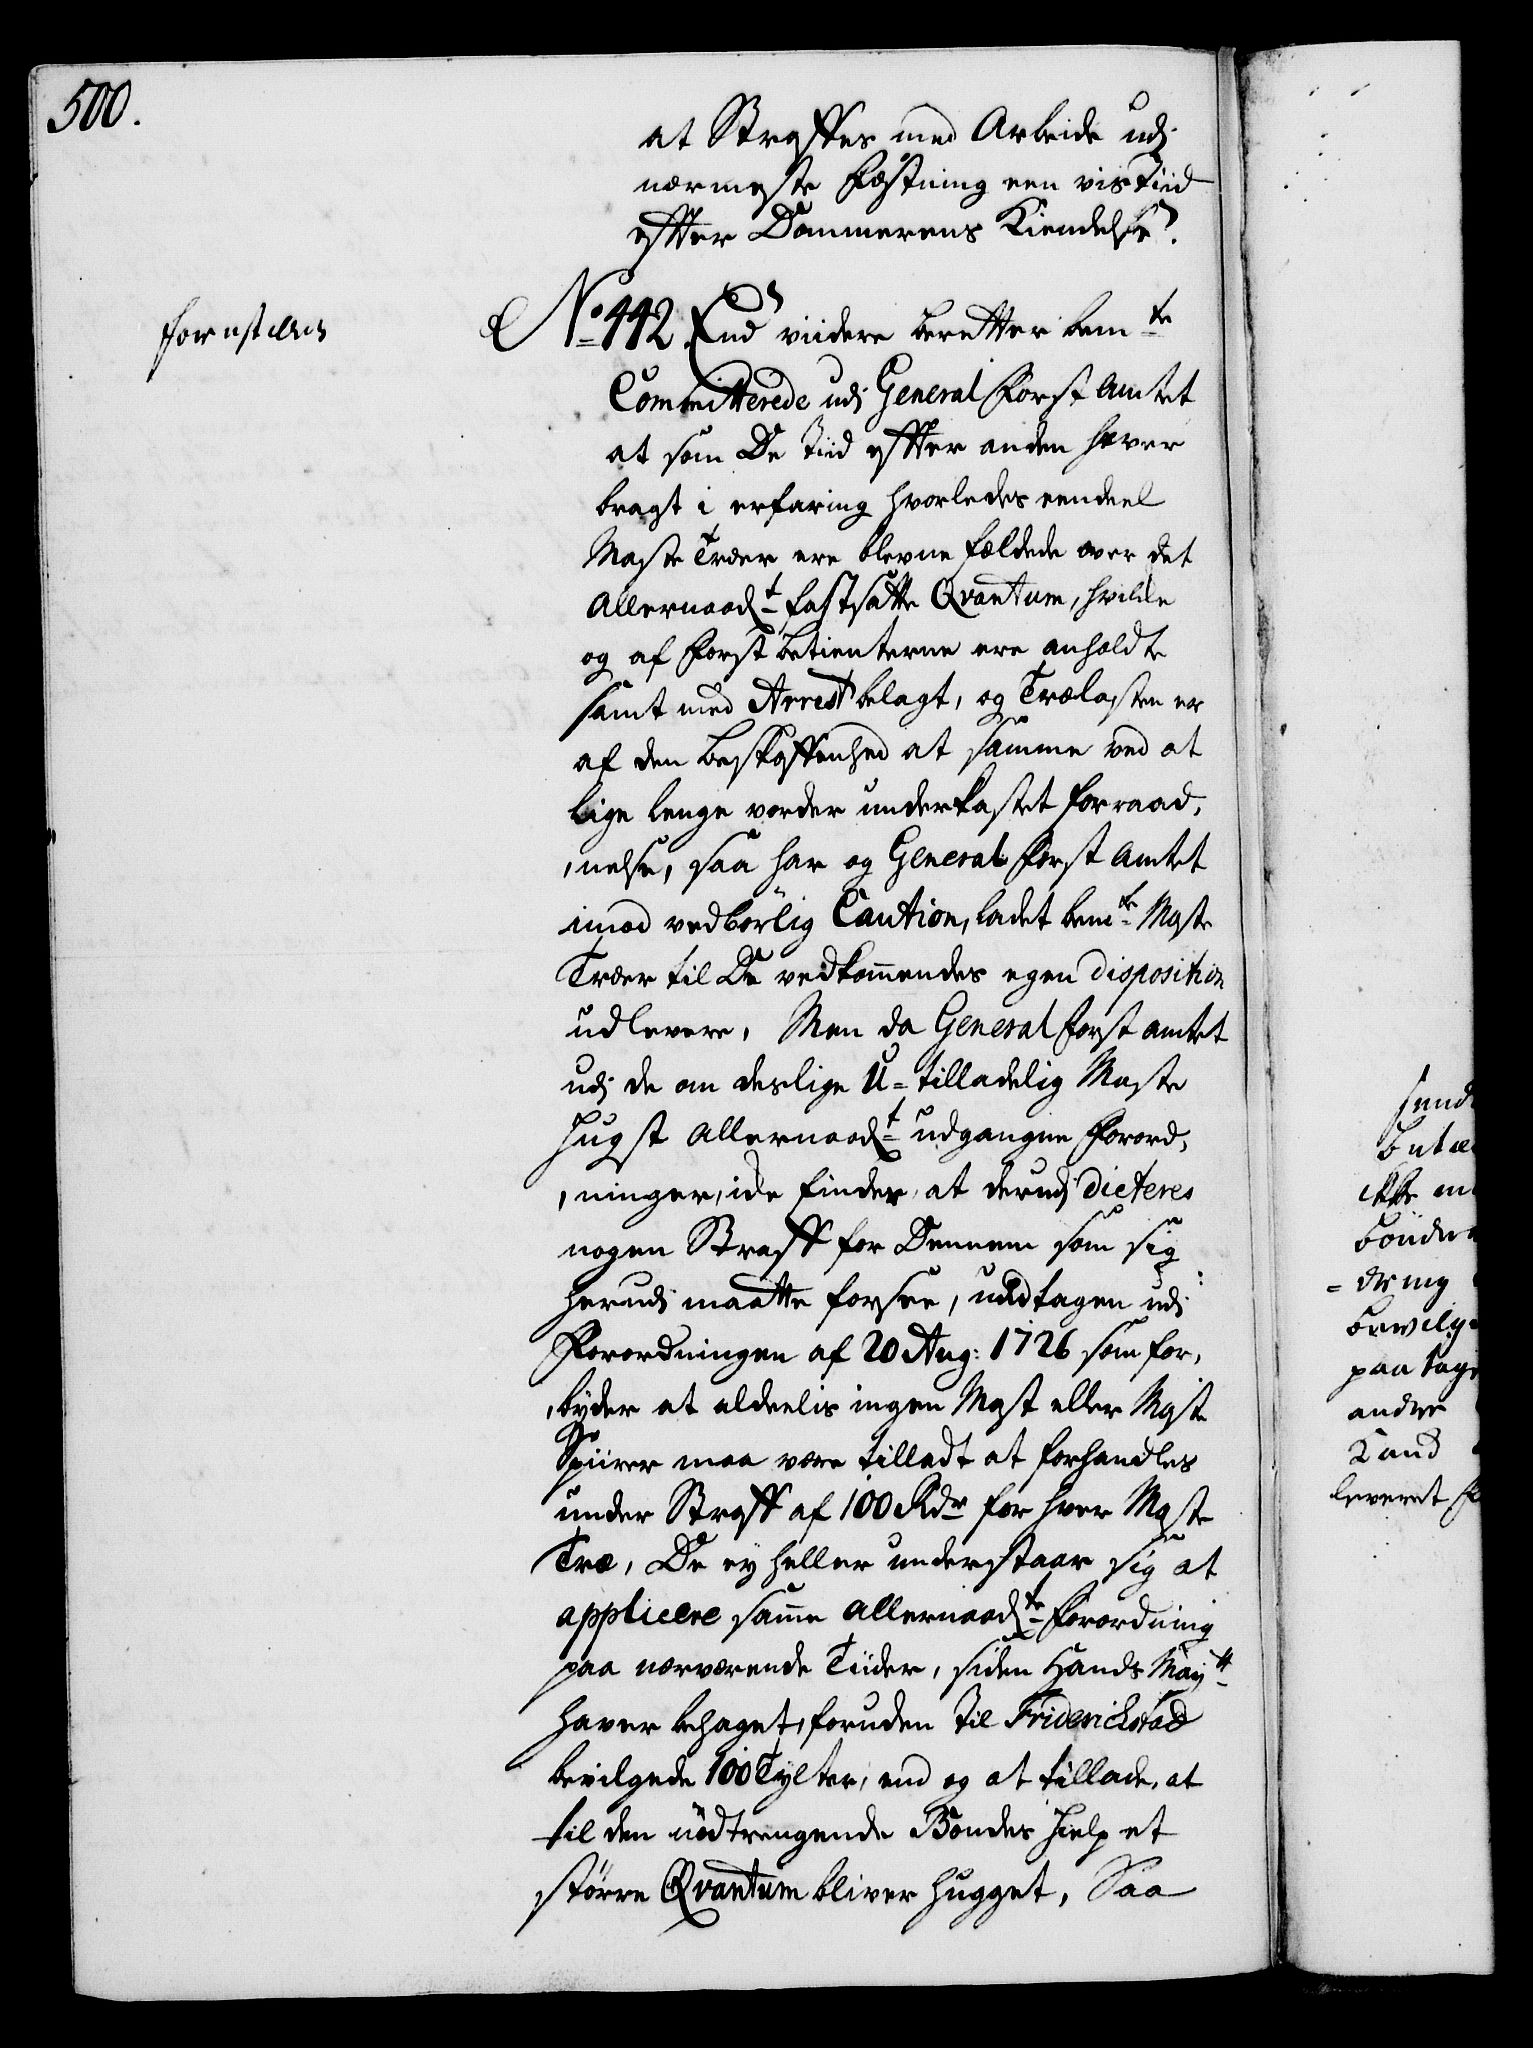 500.
at Straffes med Arbeide udj
nærmeste Fæstning een vis Tiid
effter Dommerens Kiendelse.
forestilles
No 442 End viidere beretter bemte
Committerede udj General Forst Amtet
at som De Tiid effter anden haver
bragt i erfaring hvorledes eendeel
Maste Træer ere blevne fældede over det
Allernaadt fastsatte Qvantum, hvilke
og af Forst betienterne ere anholdte
samt med Arrest belagt, og Trælasten er
af den beskaffenhed at samme ved at
lige lenge vorder underkastet forraad,
,nelse, saa har og General Forst Amtet
imod vedbörlig Caution, ladet bemte Maste
Træer til De vedkommendes egen disposition
udlevere, Men da General Forst Amtet
udj de om deslige U=tilladelig Maste
Hugst Allernaadt udgangne Forord,
,ninger, icke finder, at derudj dicteres
nogen Straff for Dennem som sig
herudj maatte forsee, undtagen udj
Forordningen af 20 Aug: 1726 som for,
,byder at aldeelis ingen Mast eller Maste
Spiirer maa være tilladt at forhandles
under Straff af 100 Rdr for hver Maste
Træ, De ey heller understaar sig at
applicere samme Allernaadte Forordning
paa nærværende Tiider, siden Hands Mayt
haver behaget, foruden til Friderichstad
bevilgede 100 Tylter, end og at tillade, at
til den nödtrengende Bondes Hielp et
större Qvantum bliver hugget, Saa
ikke
=dring
bevilge
paa
andre
Kand
leveret